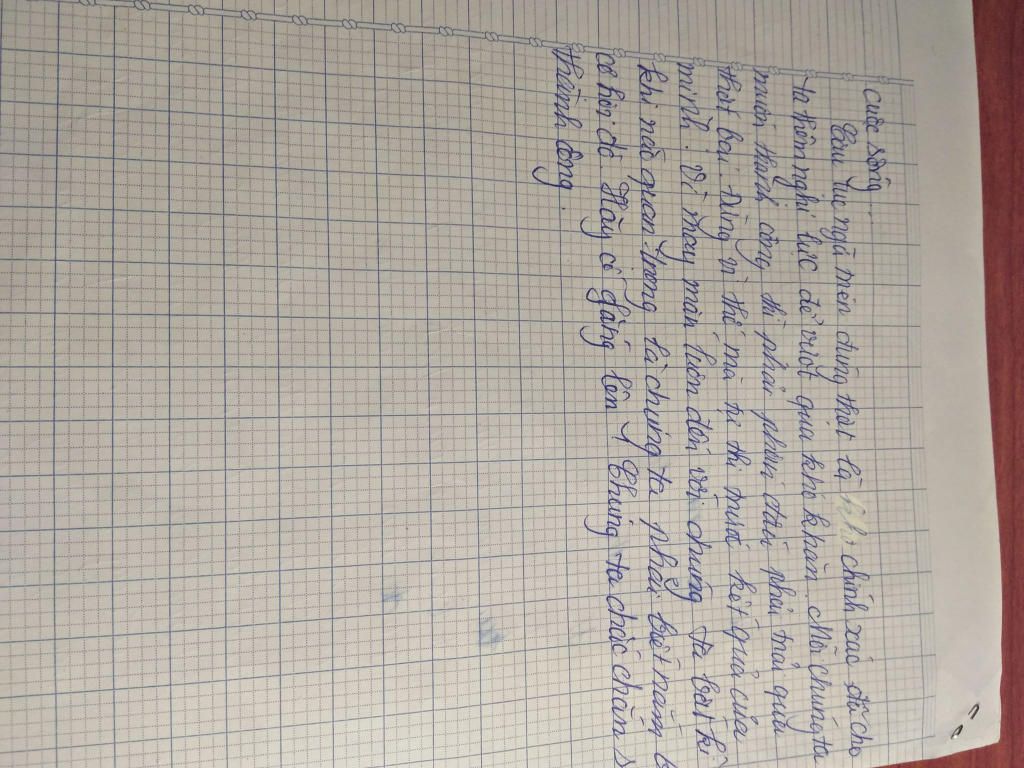 cuộc sống.
Câu tục ngữ trên đúng thật là chính xác đã cho
ta thêm nghị lực để vượt qua khó khăn. Mỗi chúng ta
muốn thành công thì phải phấn đấu phải trải qua
thất bại. Đừng vì thế mà từ bỏ trước kết quả của
mình. Vì may mắn luôn đến với chúng ta bất kì
khi nào quan trọng là chúng ta phải biết nắm b
cơ hội đó. Hãy cố gắng lên! Chúng ta chắc chắn s
thành công.